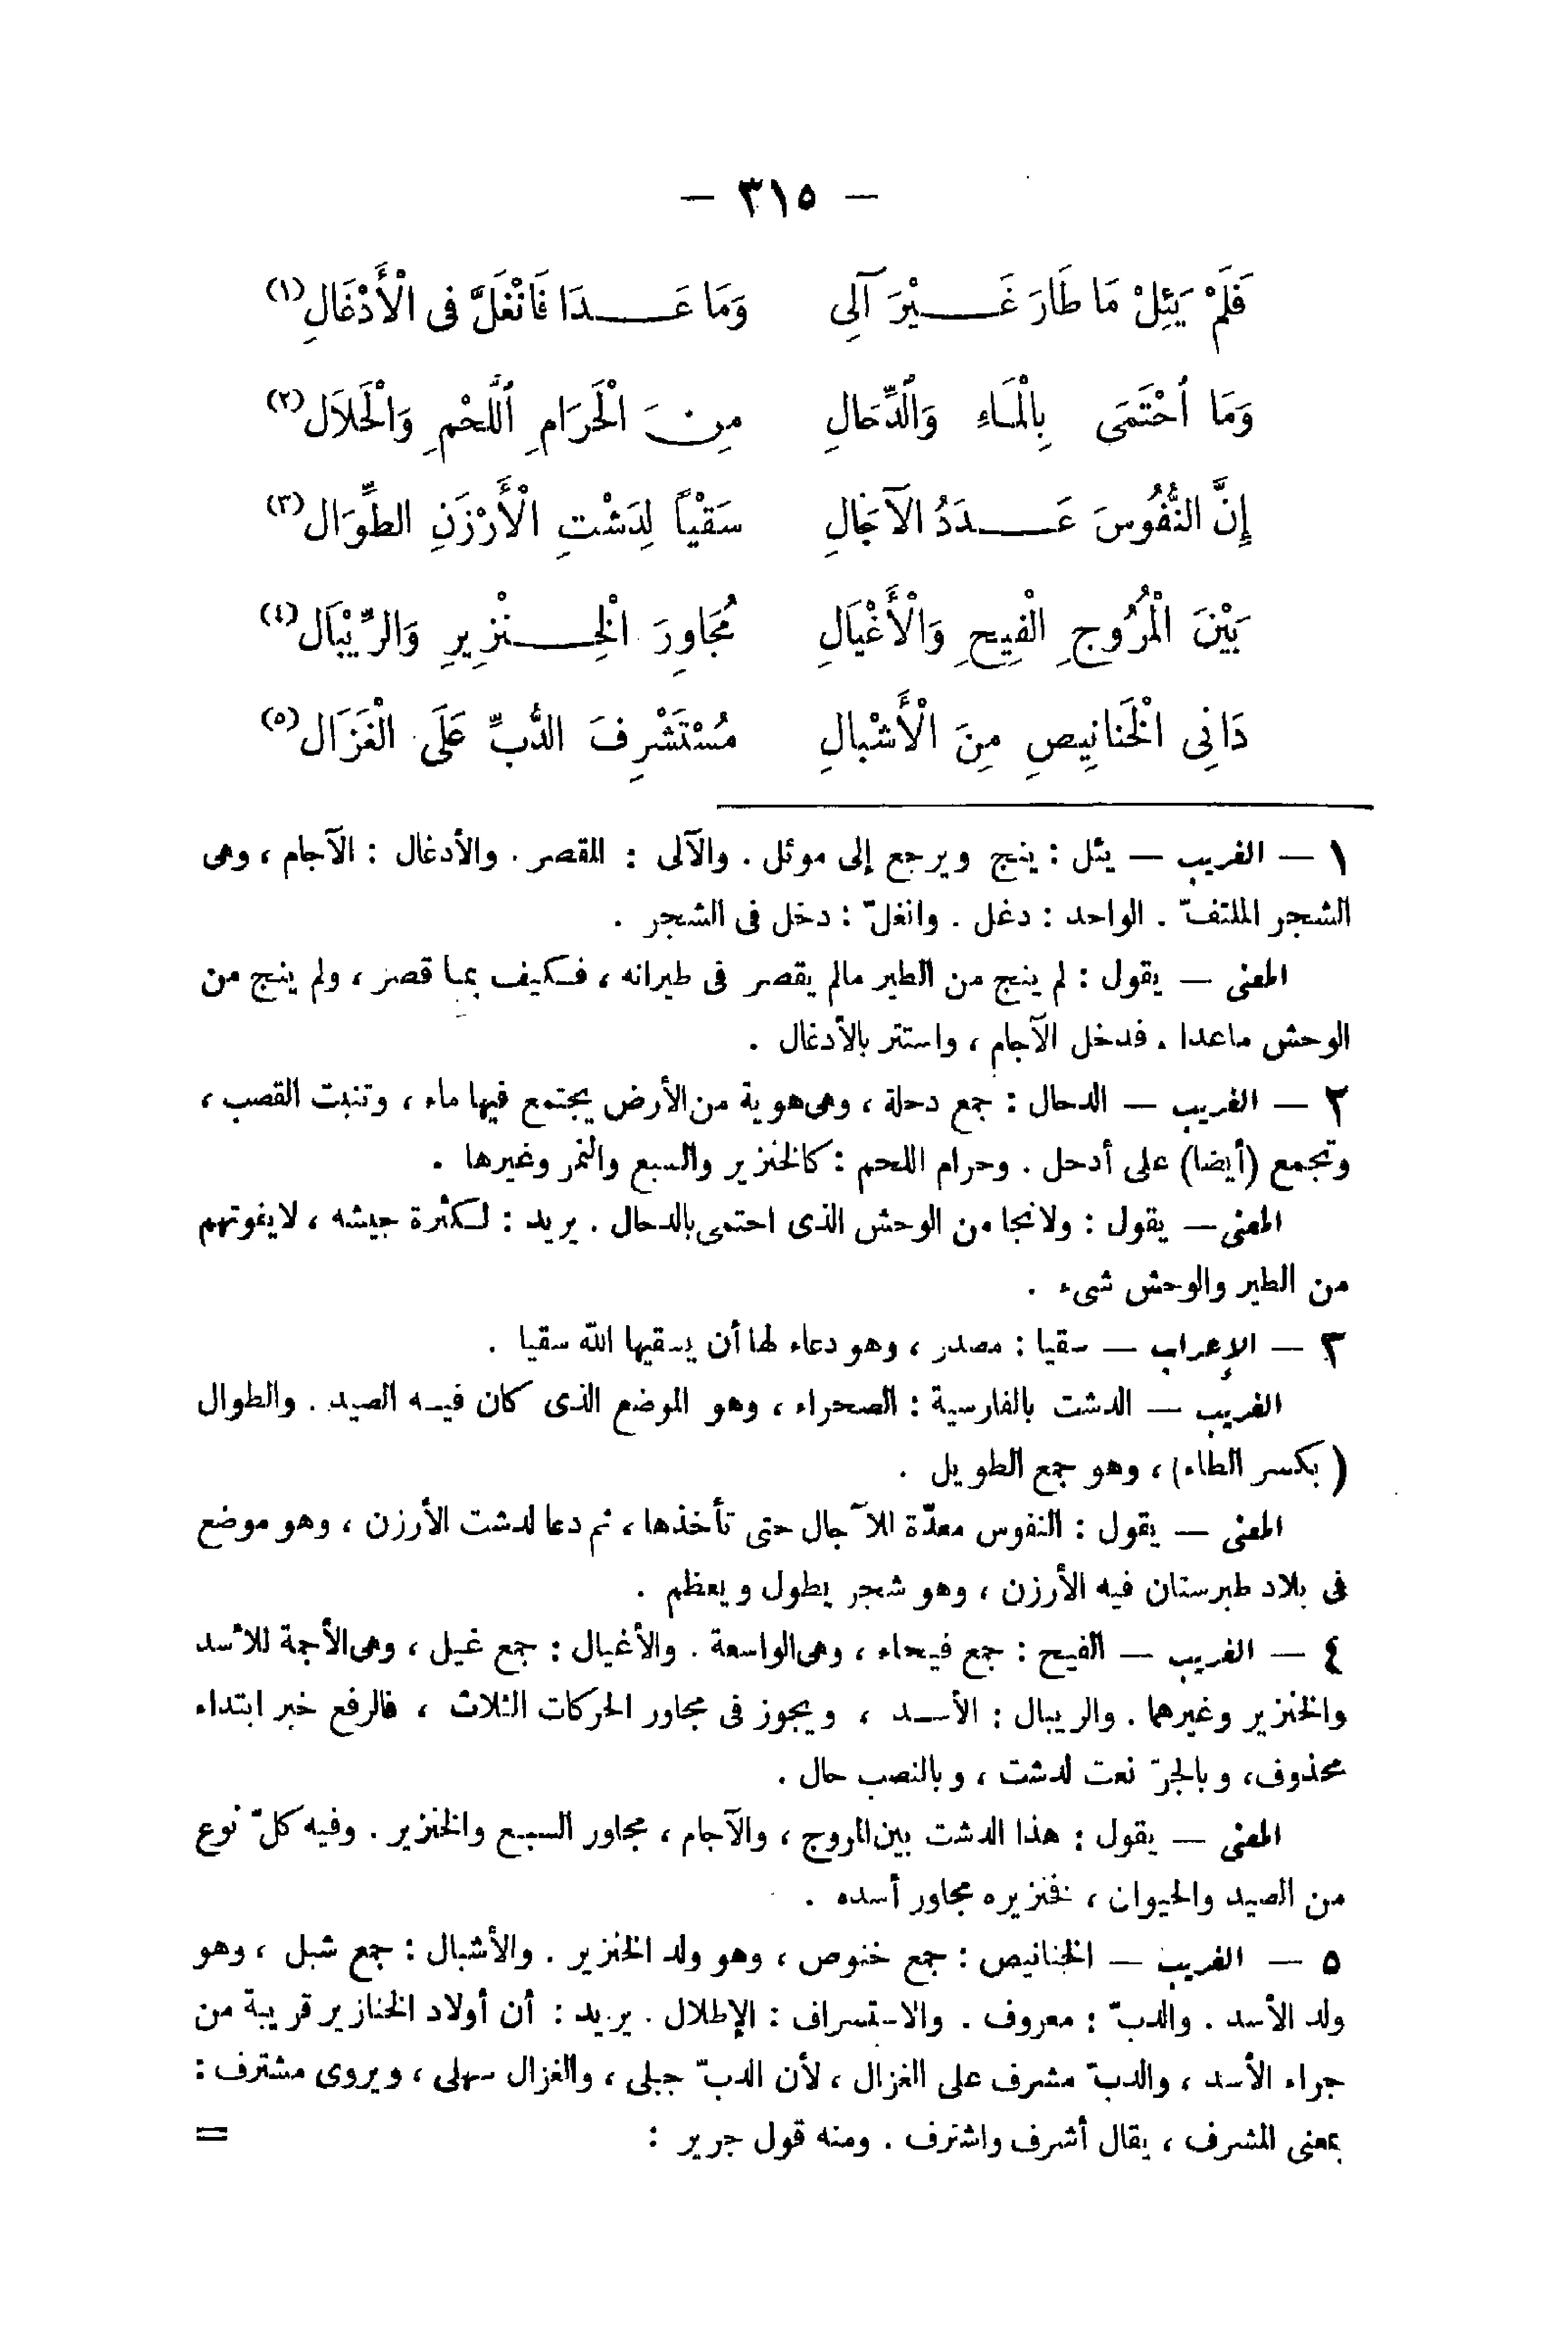 — ٣١٥ —
فَلَمْ يَئِلْ مَا طَارَ غَــيْرَ آلِى وَمَا عَــدَا فَانْغَلَّ فى الْأَدْغَالِ(١)
وَمَا اُحْتَمَى بِالْمَاءِ وَالْدِّحَالِ مِنَ الْحَرَامِ اُللَّحْمِ وَالْحَلاَلِ(٢)
إِنَّ النُّفُوسَ عَــدَدُ الآجَالِ سَقْياً لِدَشْتِ الْأَرْزَنِ الطِّوَالِ(٣)
بَيْنَ الْمُرُوجِ الْفِيحِ وَالْأَغْيَالِ مُجَاوِرَ الْخِــنْزِيرِ وَالرِّئْبَالِ(٤)
دَانِى الْخَنانِيصِ مِنَ الْأَشْبالِ مُسْتَشْرِفَ الدُّبِّ عَلَى الْغَزَالِ(٥)
١ — الغريب — يئل : ينج ويرجع إلى موئل . والآلى : المقصر . والأدغال : الآجام ، وهى
الشجر الملتفّ . الواحد : دغل . وانغلّ : دخل فى الشجر .
المعنى — يقول : لم ينج من الطير مالم يقصر فى طيرانه ، فكيف بما قصر ، ولم ينج من
الوحش ماعدا . فدخل الآجام ، واستتر بالأدغال .
٢ — الغريب — الدحال : جمع دحلة ، وهى هوية من الأرض يجتمع فيها ماء ، وتنبت القصب ،
وتجمع (أيضا) على أدحل . وحرام اللحم : كالخنزير والسبع والنمر وغيرها .
المعنى — يقول : ولا نجا من الوحش الذى احتمى بالدحال . يريد : لكثرة جيشه ، لايفوتهم
من الطير والوحش شىء .
٣ — الإعراب — سقيا : مصدر ، وهو دعاء لها أن يسقيها الله سقيا .
الغريب — الدشت بالفارسية : الصحراء ، وهو الموضع الذى كان فيه الصيد . والطوال
( بكسر الطاء) ، وهو جمع الطويل .
المعنى — يقول : النفوس معدّة للآجال حتى تأخذها ، ثم دعا لدشت الأرزن ، وهو موضع
فى بلاد طبرستان فيه الأرزن ، وهو شجر يطول ويعظم .
٤ — الغريب — الفيح : جمع فيحاء ، وهى الواسعة . والأغيال : جمع غيل ، وهى الأجمة للأسد
والخنزير وغيرهما . والريبال : الأســد ، ويجوز فى مجاور الحركات الثلاث ، فالرفع خبر ابتداء
محذوف، وبالجرّ نعت لدشت ، وبالنصب حال .
المعنى — يقول : هذا الدشت بين المروج ، والآجام ، مجاور السبع والخنزير . وفيه كلّ نوع
من الصيد والحيوان ، فخنزيره مجاور أسده .
٥ — الغريب — الخنانيص : جمع خنوص ، وهو ولد الخنزير . والأشبال : جمع شبل ، وهو
ولد الأسد . والدبّ : معروف . والاستسراف : الإطلال . يريد : أن أولاد الخنازير قريبة من
جراء الأسد ، والدبّ مشرف على الغزال ، لأن الدبّ جبلى ، والغزال سهلى ، ويروى مشترف :
بمعنى المشرف ، يقال أشرف واشترف . ومنه قول جرير : =